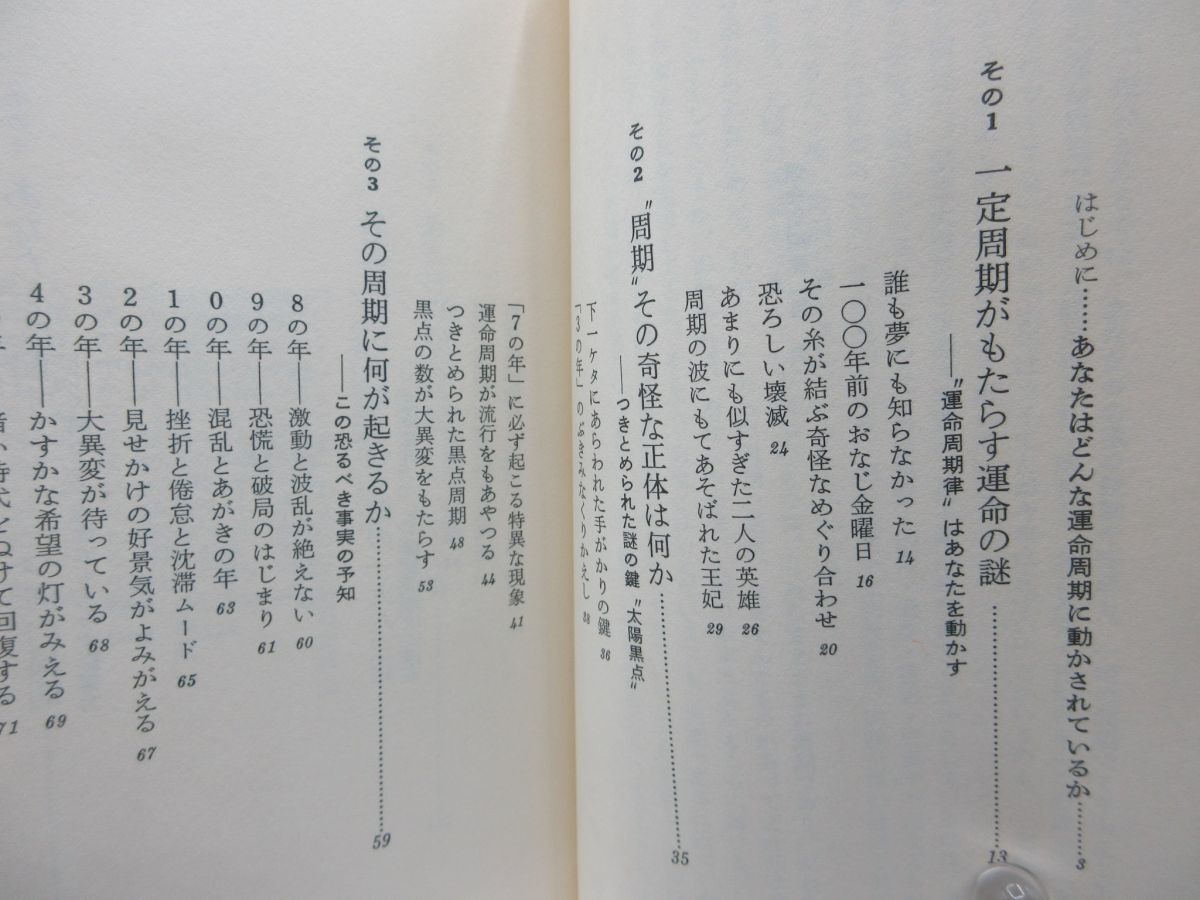 はじめに……あなたはどんな運命周期に動かされているか………3
その1 一定周期がもたらす運命の謎………13
――〝運命周期律〟はあなたを動かす
誰も夢にも知らなかった 14
一〇〇年前のおなじ金曜日 16
その糸が結ぶ奇怪なめぐり合わせ 20
恐ろしい壊滅 24
あまりにも似すぎた二人の英雄 26
周期の波にもてあそばれた王妃 29
その2 〝周期〟その奇怪な正体は何か………35
――つきとめられた謎の鍵〝太陽黒点〟
下一ケタにあらわれた手がかりの鍵 36
「3の年」のぶきみなくりかえし 38
「7の年」に必ず起こる特異な現象 41
運命周期が流行をもあやつる 44
つきとめられた黒点周期 48
黒点の数が大異変をもたらす 53
その3 その周期に何が起きるか………59
――この恐るべき事実の予知
8の年――激動と波乱が絶えない 60
9の年――恐慌と破局のはじまり 61
0の年――混乱とあがきの年 63
1の年――挫折と倦怠と沈滞ムード 65
2の年――見せかけの好景気がよみがえる 67
3の年――大異変が待っている 68
4の年――かすかな希望の灯がみえる 69
時代とぬけて回復する 71